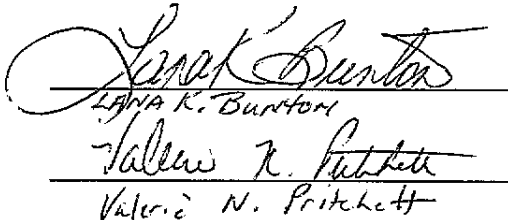 Lana K Bunton
LANA K. BUNTON
Valerie N. Pritchett
Valerie N. Pritchett